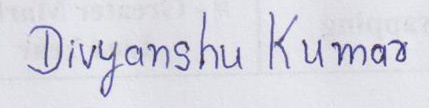 Divyanshu Kumar